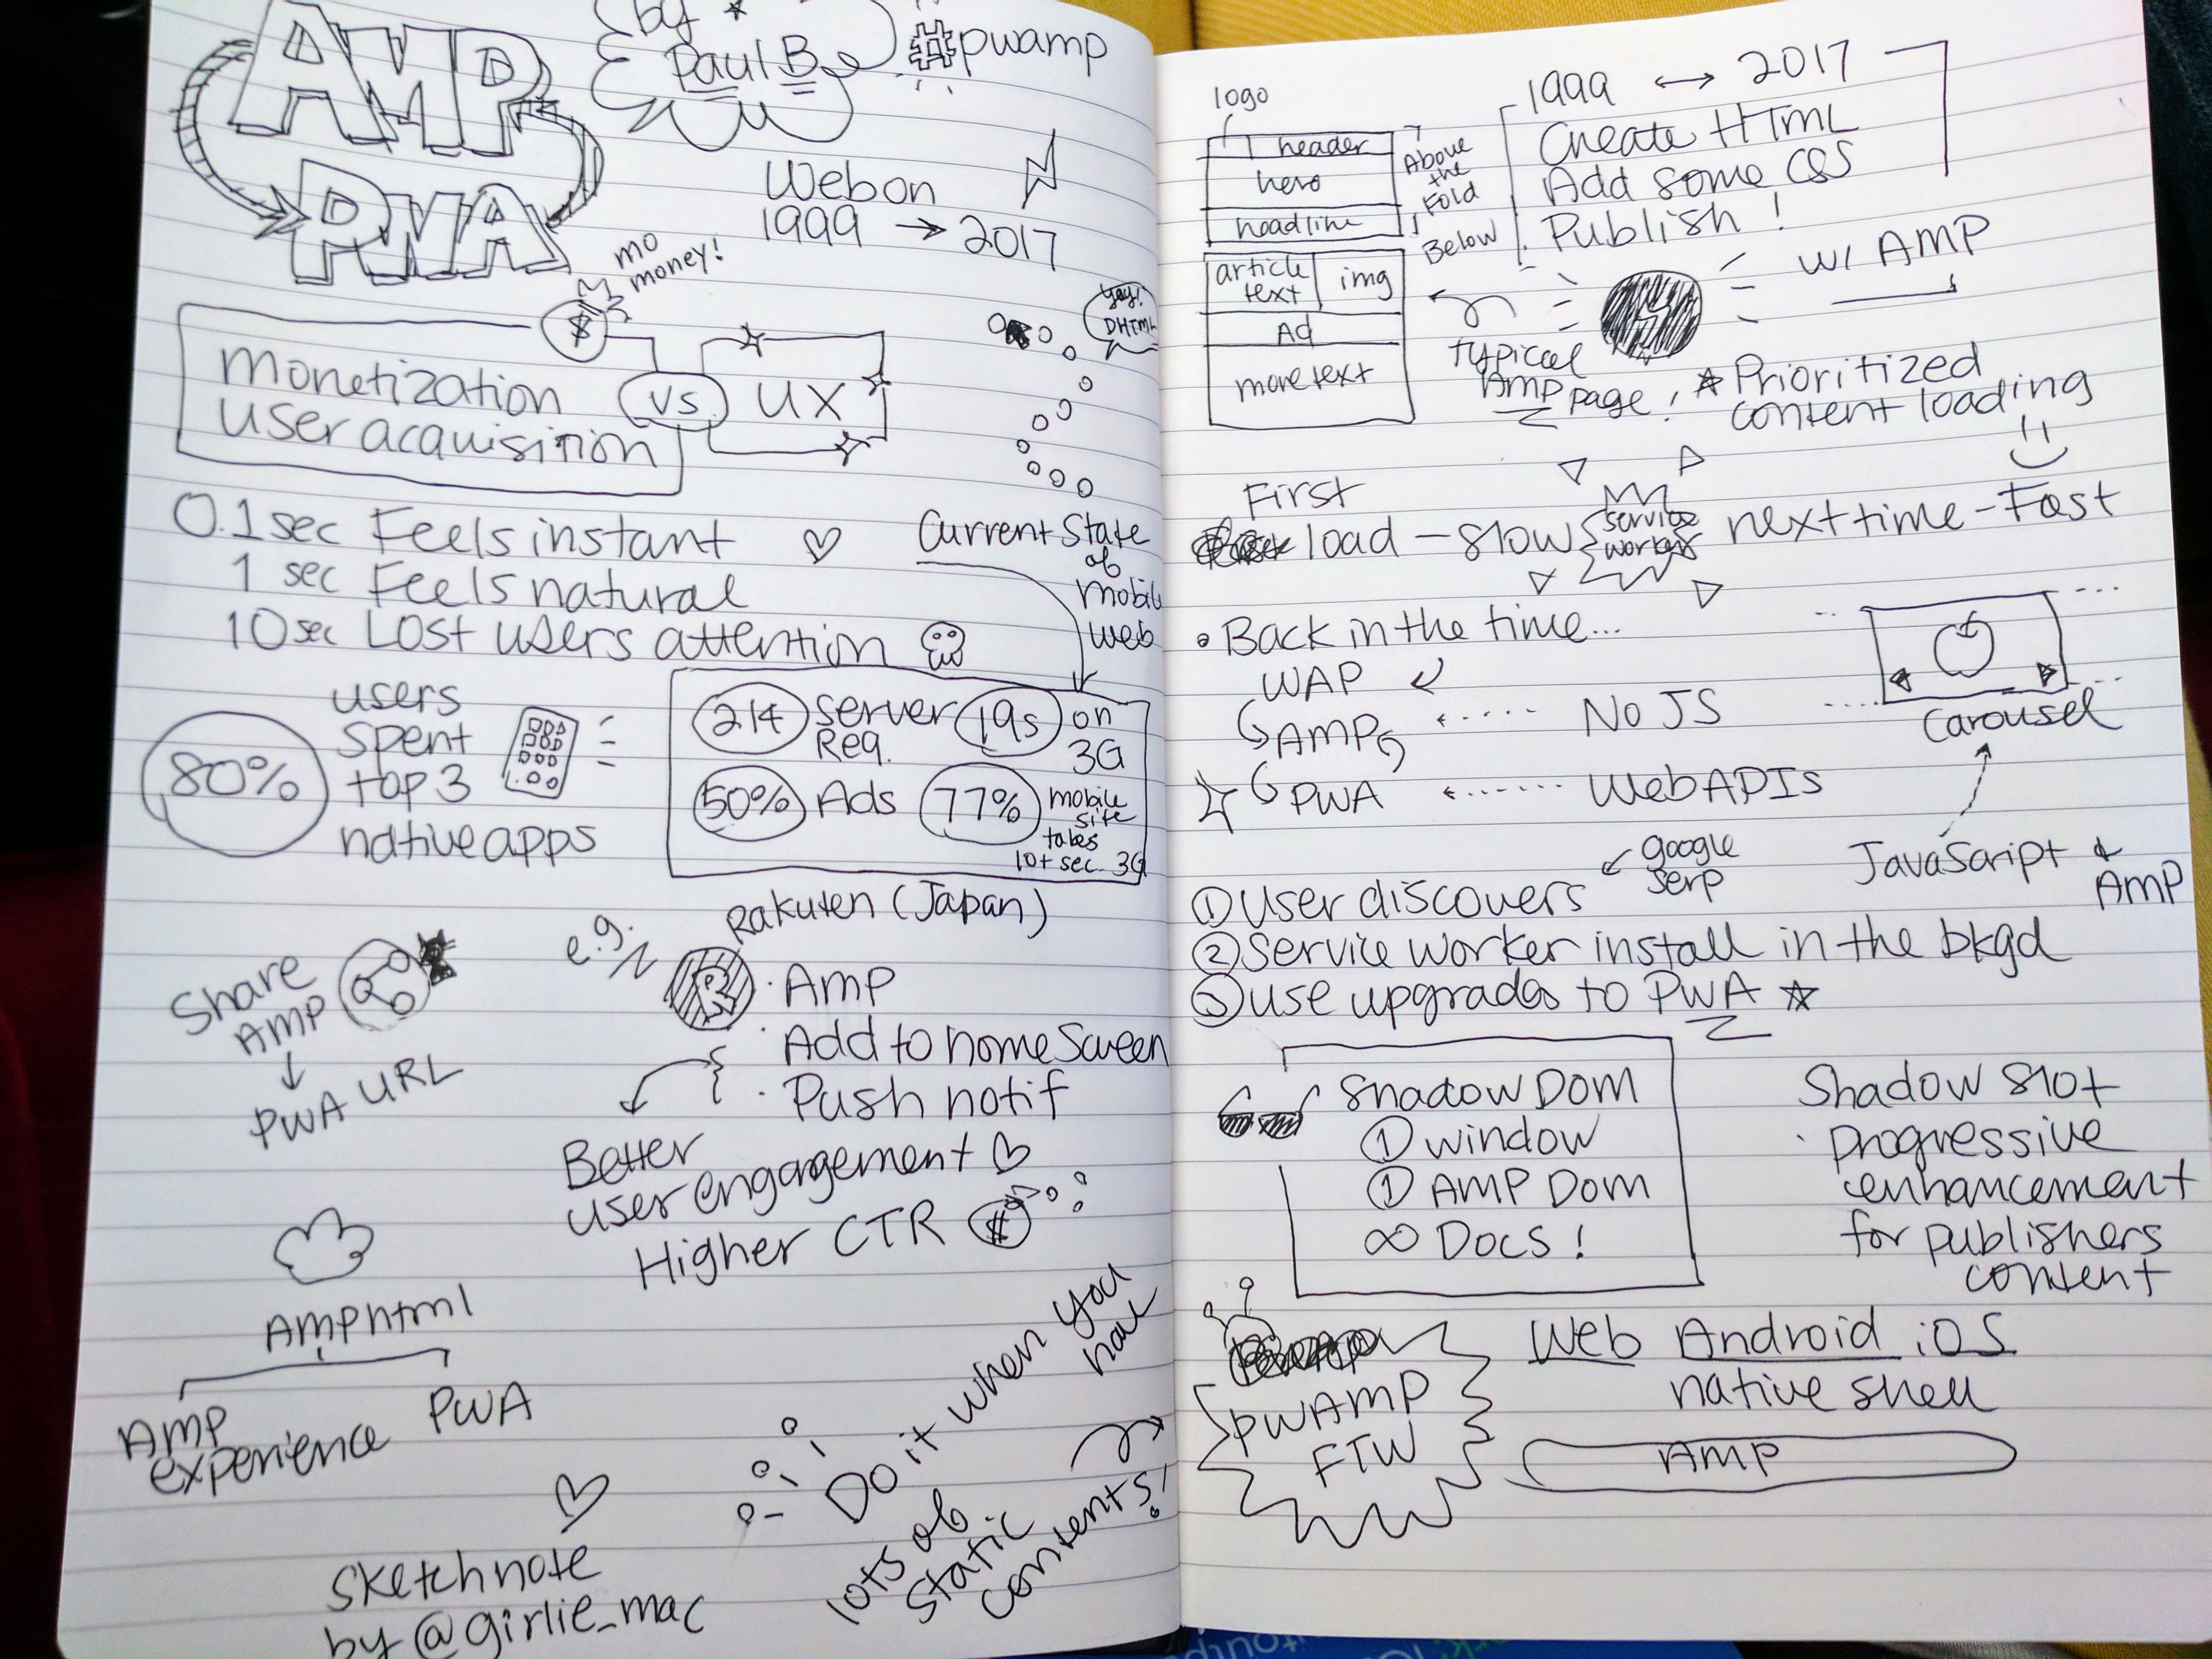 AMP
PWA
by
Paul B
#pwamp
Web on
1999 → 2017
mo
money!
$
Monetization
user acquisition
vs
UX
yay!
DHTML
0.1 sec Feels instant
1 sec Feels natural
10 sec Lost users attention
Current State
of
mobile
web
80%
users
spent
top 3
native apps
214 Server
Req.
19s on
3G
50% Ads
77% mobile
site
takes
10+ sec. 3G
Share
AMP
↓
PWA URL
e.g.
Rakuten (Japan)
R
· Amp
· Add to home Screen
· Push notif
Better
user engagement
Higher CTR
$
Amphtml
Amp
experience
PWA
Do it when you
have
lots of
static
contents!
sketchnote
by @girlie_mac
logo
header
hero
headline
Above
the
Fold
Below
article
text
img
Ad
more text
typical
AMP page!
1999 ↔ 2017
Create HTML
Add some CSS
Publish!
w/ AMP
Prioritized
content loading
First
load - slow
service
worker
next time - Fast
• Back in the time...
WAP
AMP
No JS
PWA
Web APIs
Carousel
JavaScript &
AMP
google
serp
① User discovers
② Service worker install in the bkgd
③ use upgrades to PWA
Shadow Dom
① window
① AMP Dom
∞ Docs!
Shadow slot
· progressive
enhancement
for publishers
content
PWAMP
FTW
Web Android iOS
native shell
AMP